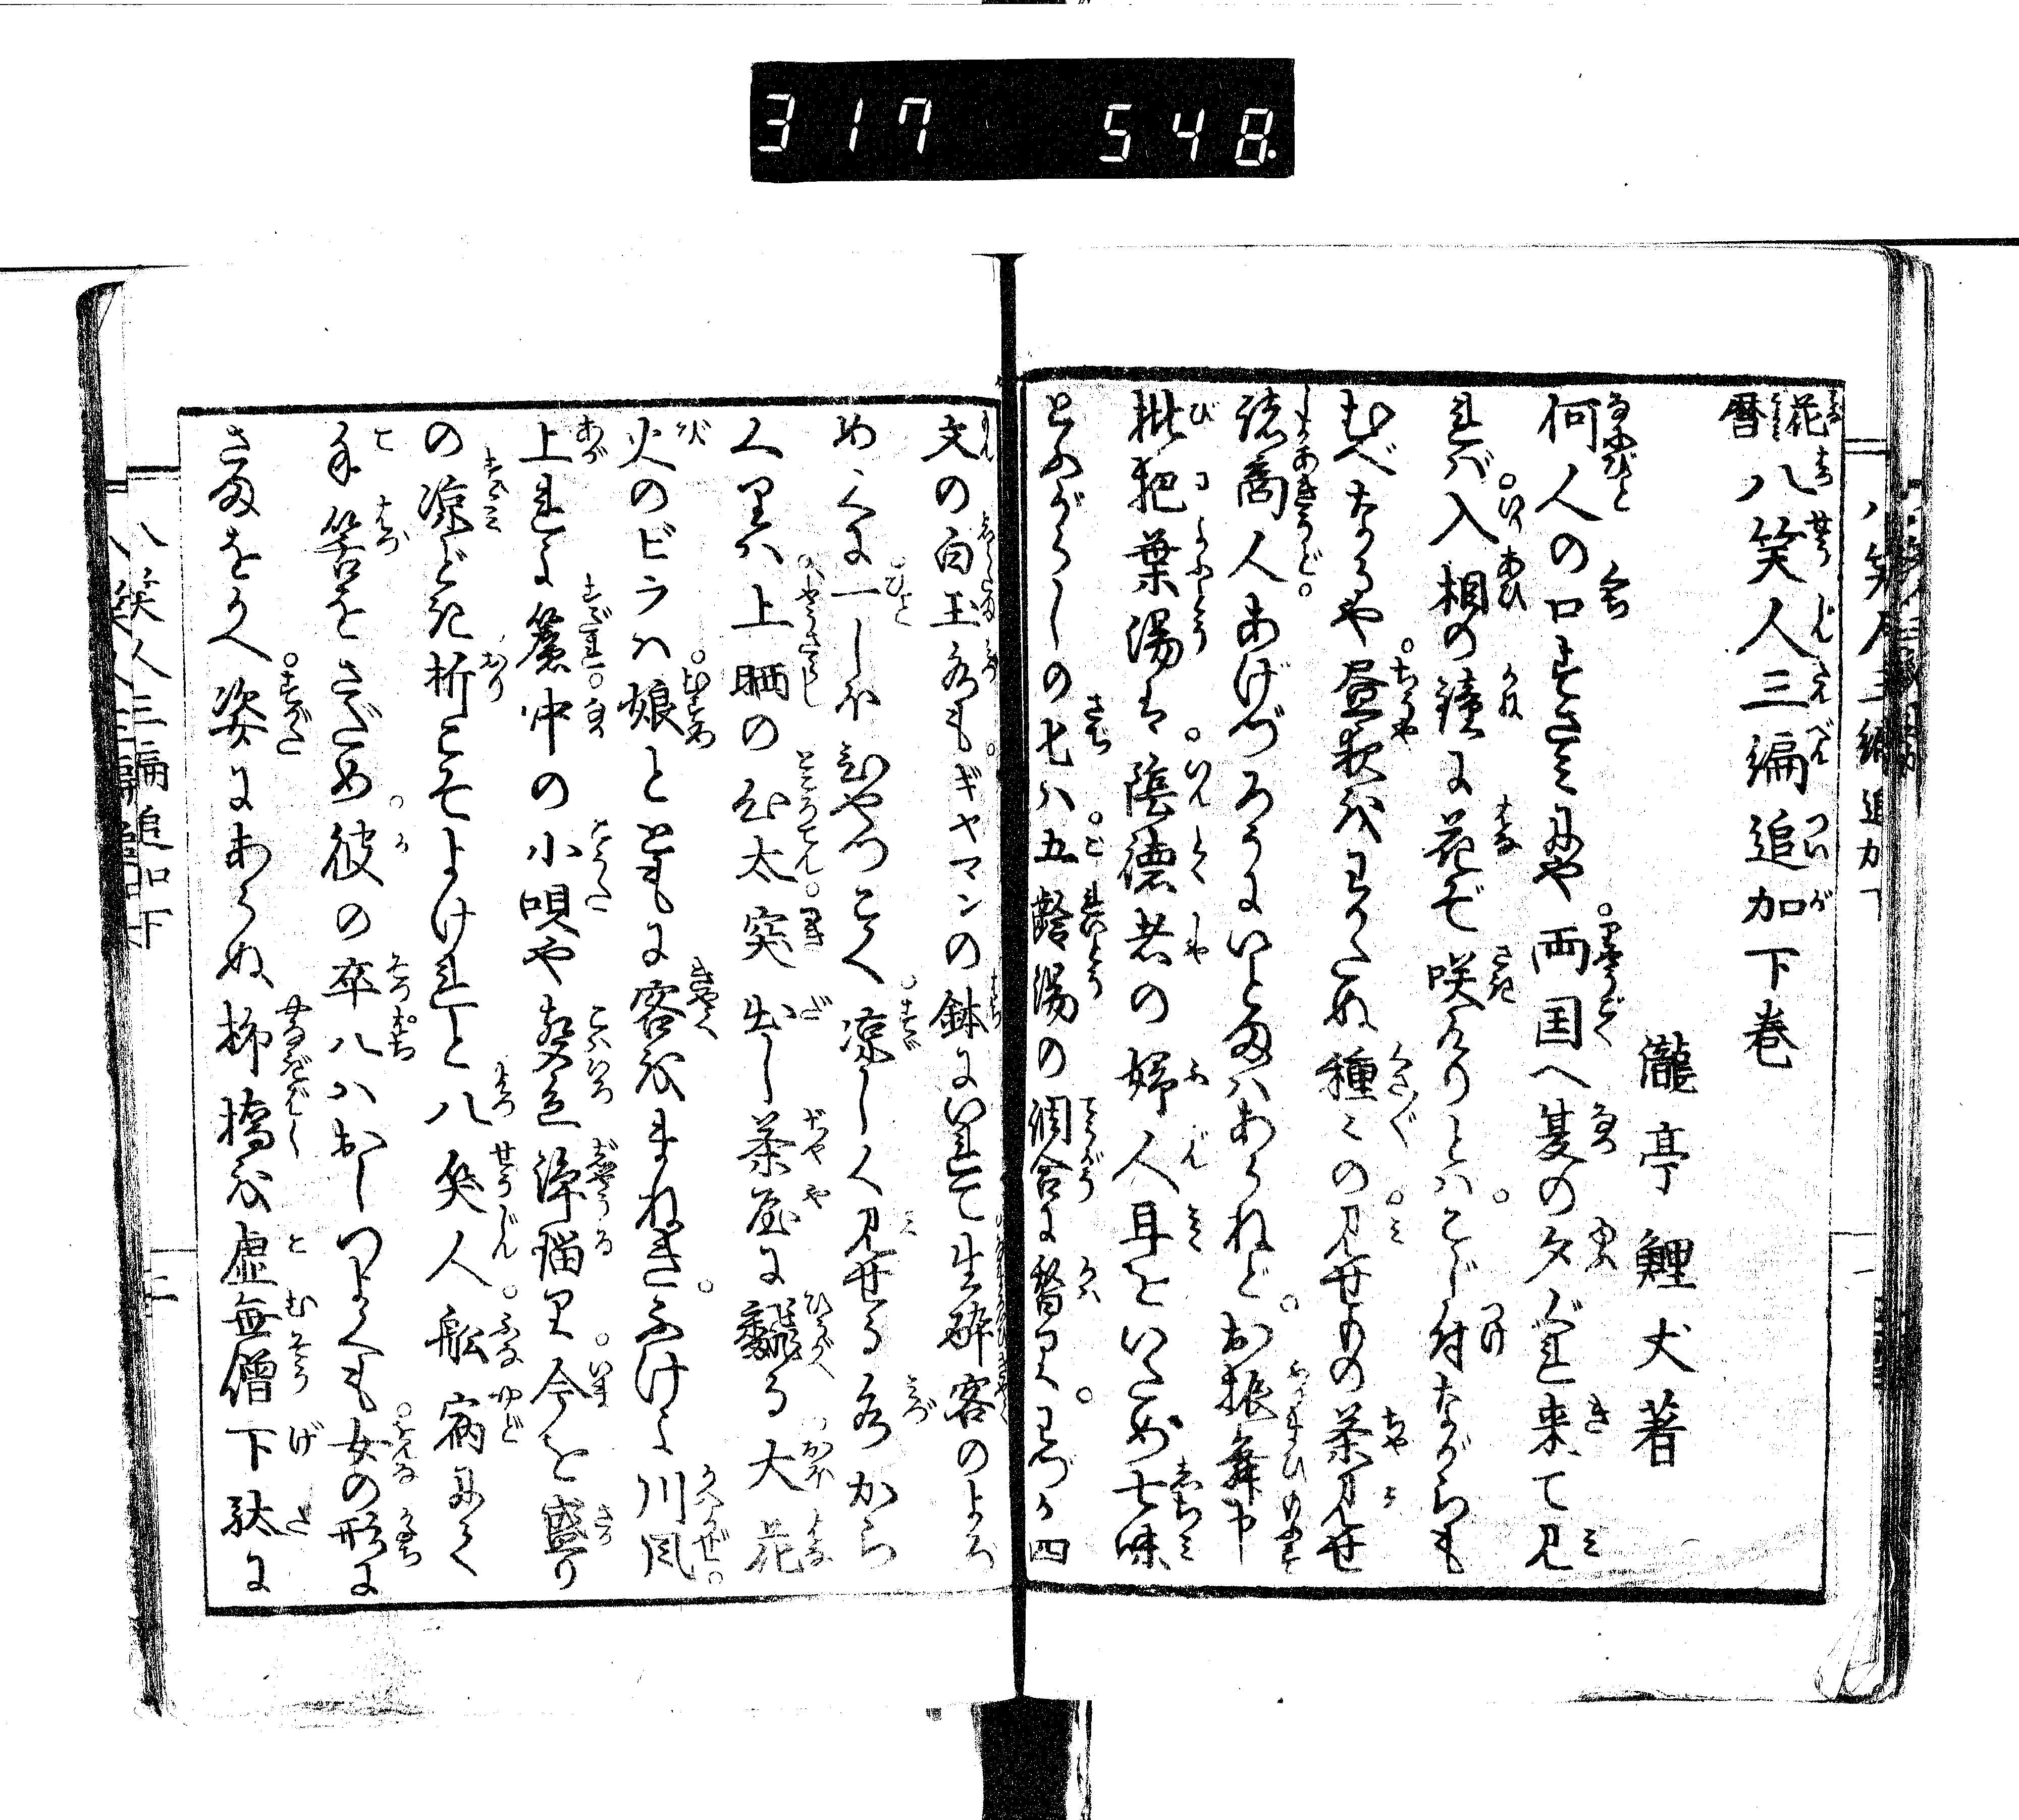 317 548.
花暦八笑人三編追加下巻
瀧亭鯉丈著
何人の口ずさミにや両国へ夏の夕ぐれ来て見
れバ入相の鐘に花ぞ咲けりとハこじ付ながらも
むべなるや昼夜をわかたぬ種〻の見せもの茶見せ
諸商人あげづろうにいとまハあらねどお振舞申
枇杷葉湯は陰徳者の婦人耳をいため七味
とふがらしの七ハ五齢湯の調合に替りわづか四
文の白玉水もギヤマンの鉢にいれて生酔客のよろ
めくに一しほひやつこく凉しく見せる水から
くりハ上晒の心太突出し茶屋に飜る大花
火のビラハ娘とともに客をまねきふけゆく川風
上れよ簾中の小唄や声色浄瑠り今を盛り
の凉ミどき折こそよけれと八笑人船宿にて
手筈をさだめ彼の卒八ハおしつよくも女の形に
さまをかへ姿にあらぬ柳橋を虚無僧下駄に
八笑人三編追加下
二